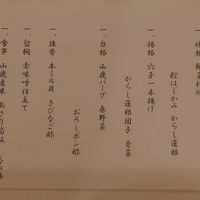 一、焼物
粉はじかみ からし蓮根
一、揚物 穴子一本揚げ
からし蓮根団子 青菜
一、台物 山鹿バーグ 春野菜
おろしポン酢
一、強肴 本ミル貝 きびなご酢
一、留椀 赤味噌仕立て
一、食事 山鹿産米 あさり